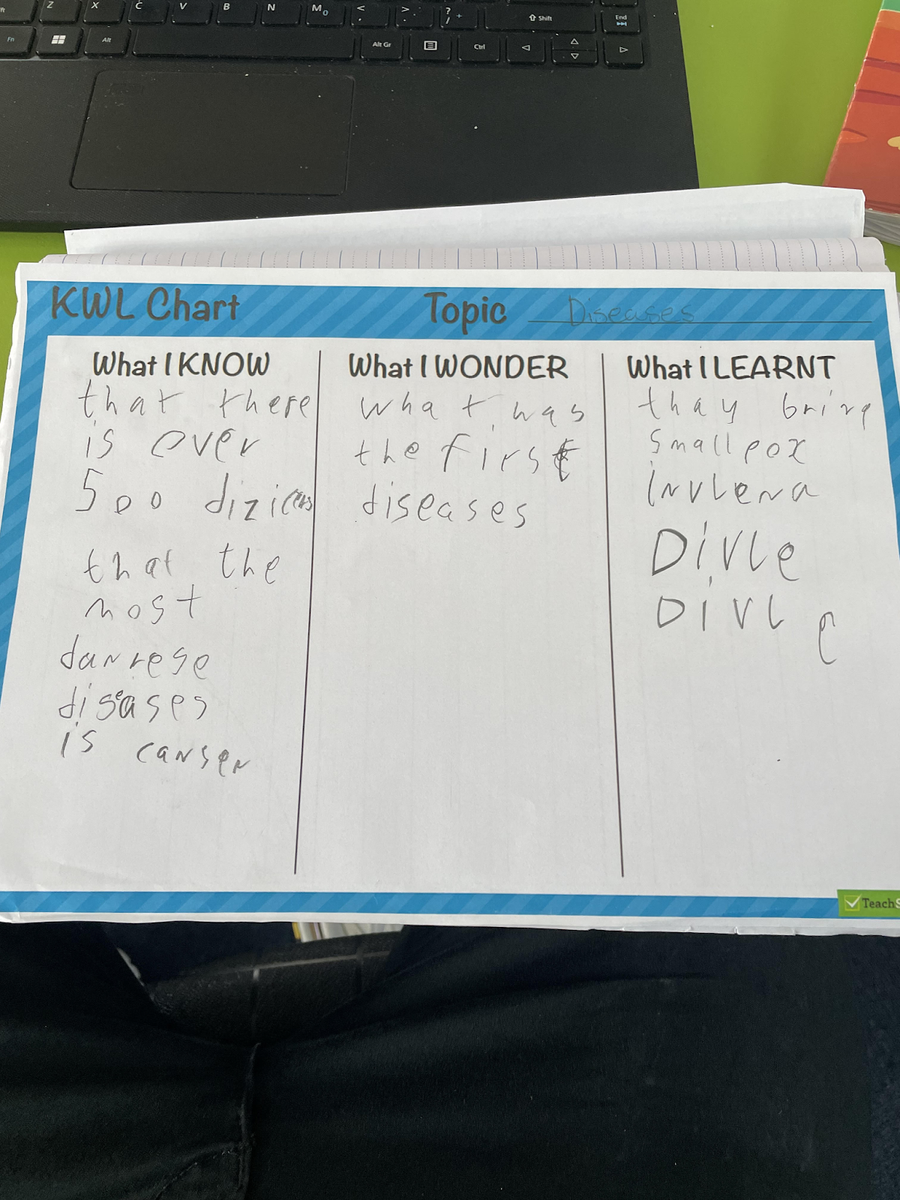 Z X C V B N M < > ? End
, . / + ⇧ Shift
Fn Alt Alt Gr Ctrl
KWL Chart Topic Diseases
What I KNOW
that there
is over
500 dizicers
that the
most
danrese
diseases
is canser
What I WONDER
what was
the first
diseases
What I LEARNT
thay bring
small pox
invlena
Divle
Divl e
TeachS